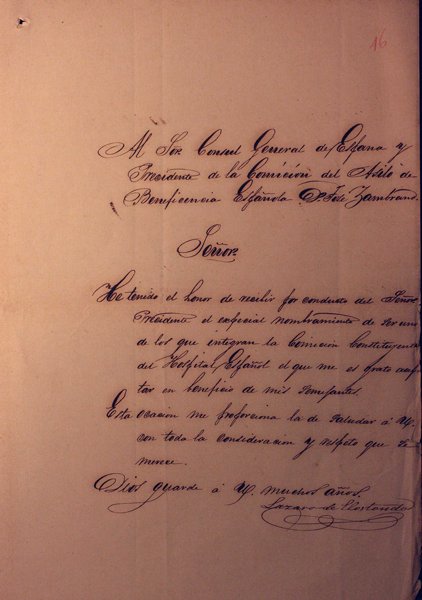 16
Al Sor. Consul General de España y
Presidente de la Comición del Asilo de
Beneficencia Española D. José Zambrano.
Señor.
He tenido el honor de recibir por conducto del Señor
Presidente el especial nombramiento de ser uno
de los que integran la Comición Constituyente
del Hospital Español el que me es grato acep-
tar en beneficio de mis semejantes.
Esta ocacion me proporciona la de saludar á V.
con toda la consideracion y respeto que se
merece.
Dios guarde á V. muchos años.
Lazaro de